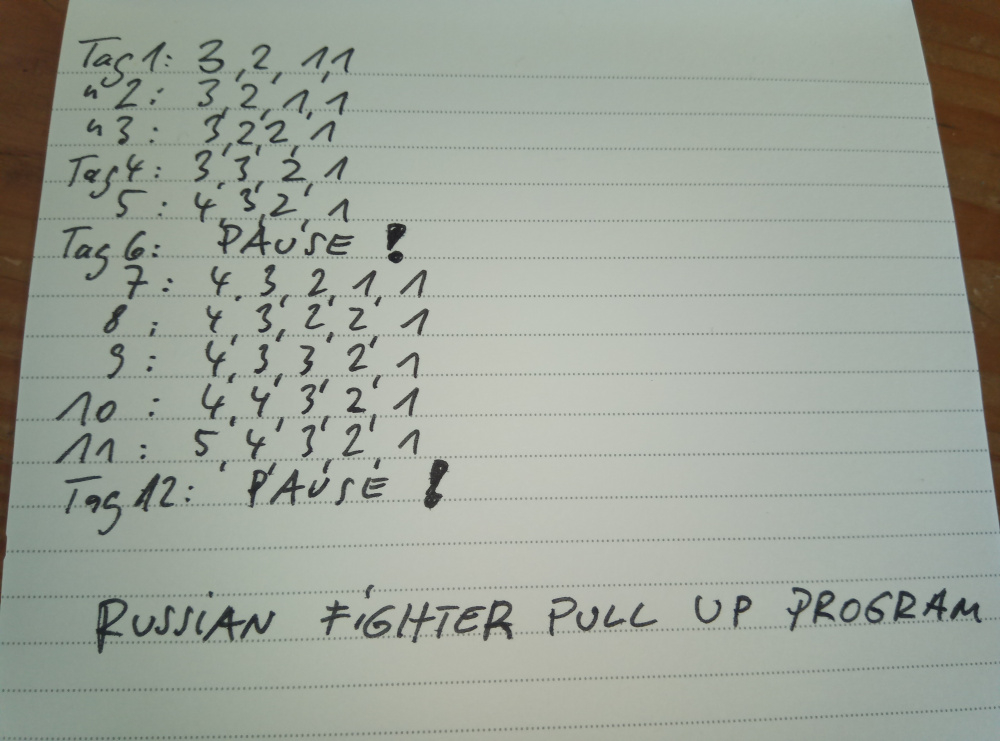 Tag 1: 3, 2, 1, 1
" 2: 3, 2, 1, 1
" 3: 3, 2, 2, 1
Tag 4: 3, 3, 2, 1
5: 4, 3, 2, 1
Tag 6: PAUSE!
7: 4, 3, 2, 1, 1
8: 4, 3, 2, 2, 1
9: 4, 3, 3, 2, 1
10: 4, 4, 3, 2, 1
11: 5, 4, 3, 2, 1
Tag 12: PAUSE!
RUSSIAN FIGHTER PULL UP PROGRAM